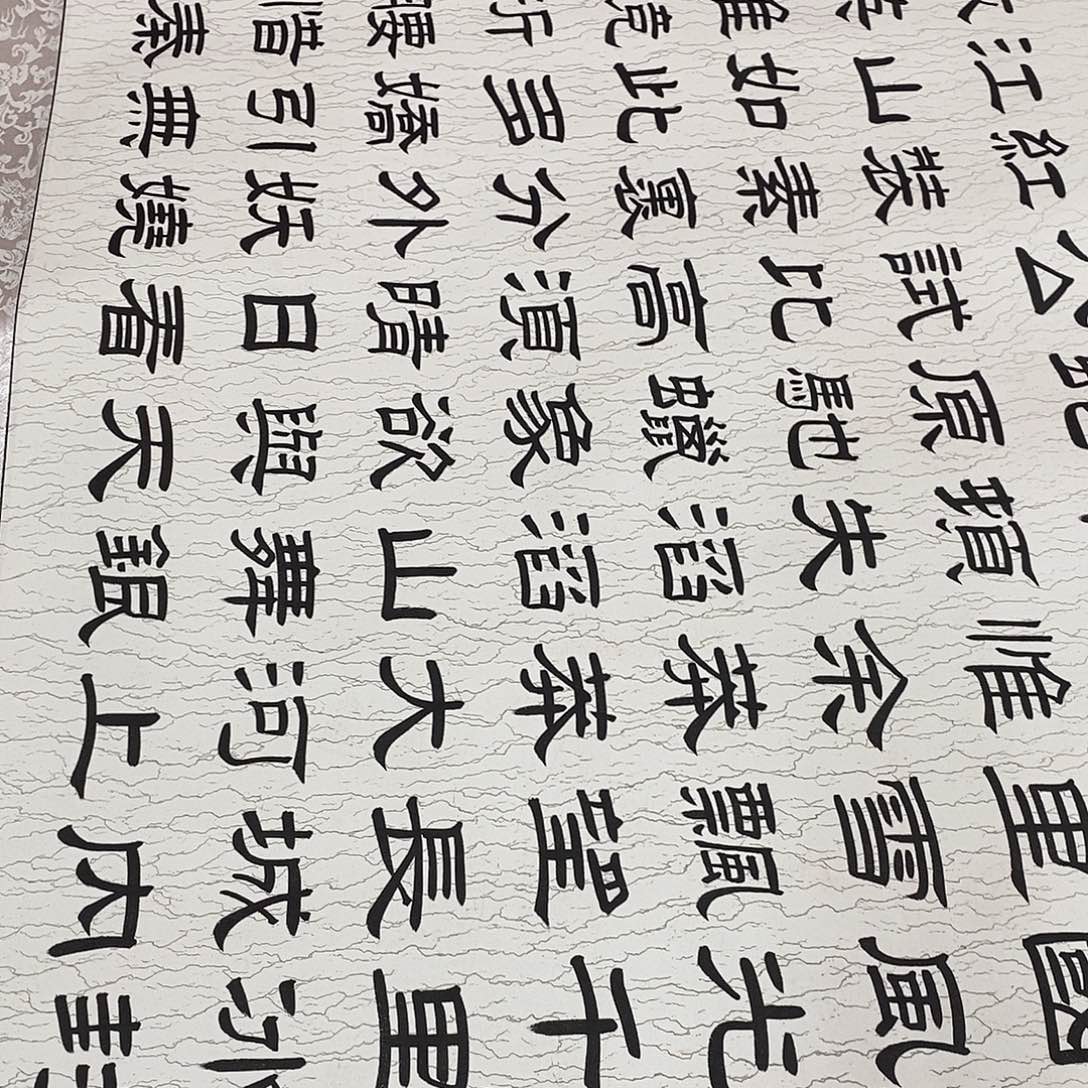 國風光千里冰封
里雪飄望長城內
惟余莽莽大河上
頓失滔滔山舞銀
原馳蠟象欲與天
公試比高須晴日看
紅裝素裹分外妖嬈
江山如此多嬌引無
英雄競折腰惜秦